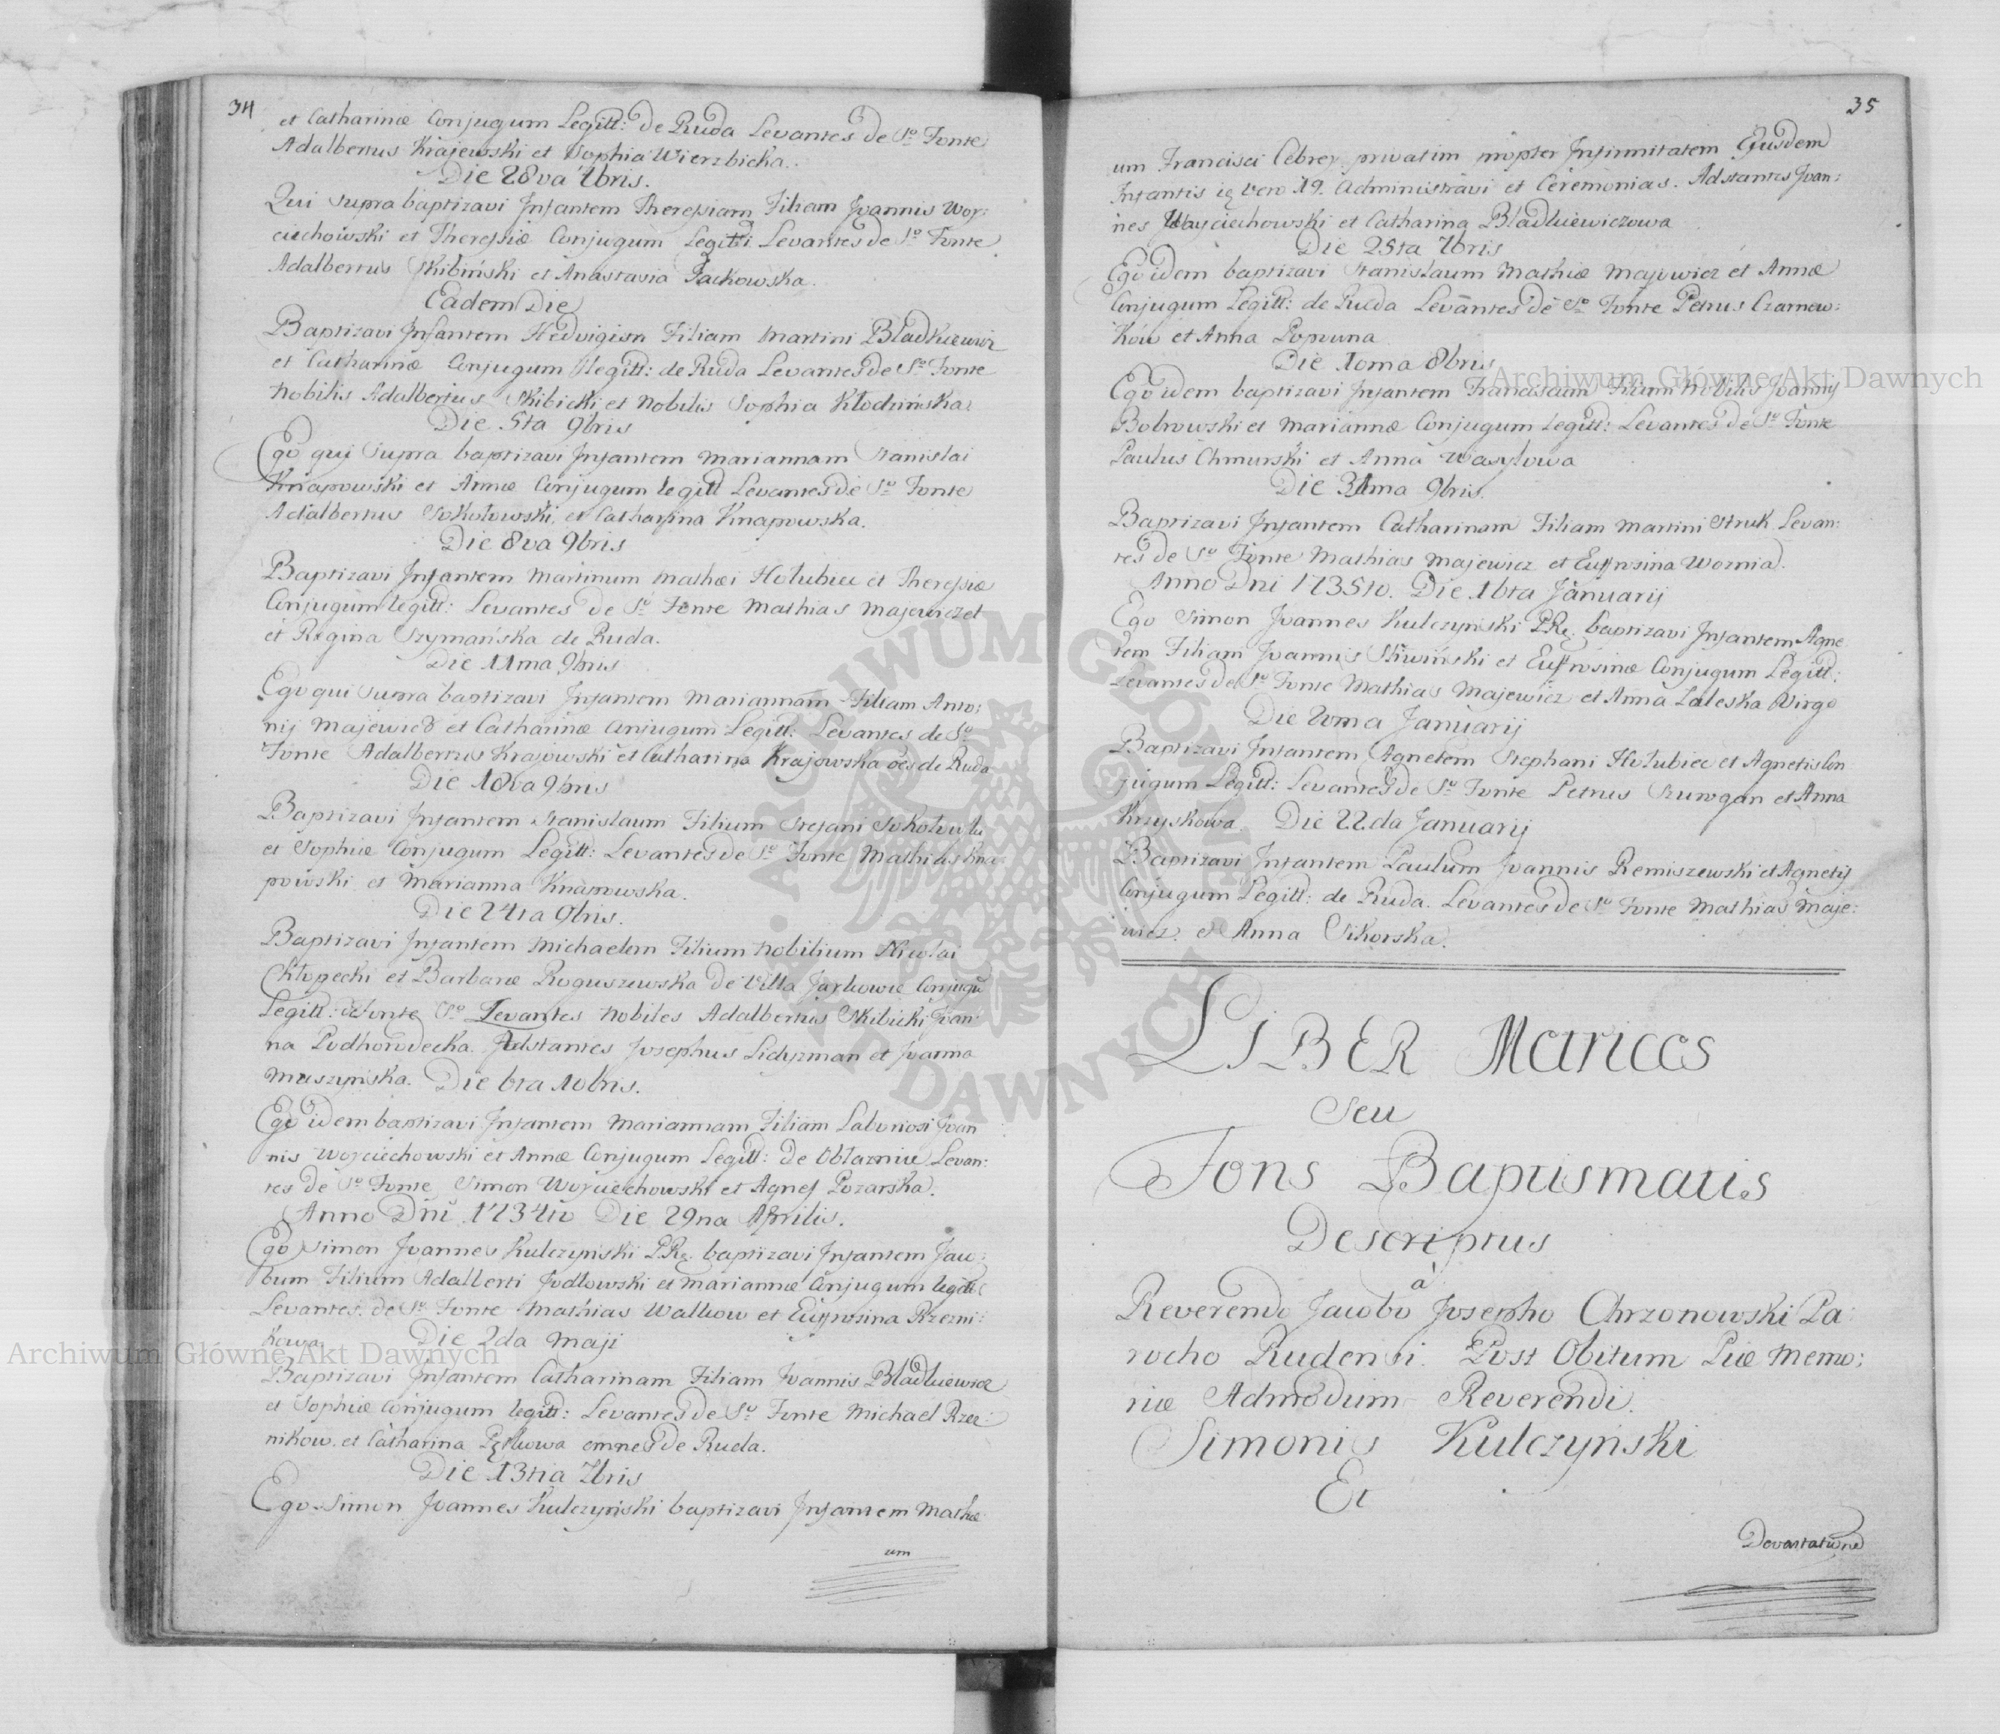 34
et Catharinæ Conjugum Legitt: de Ruda Levantes de So Fonte
Adalbertus Krajewski et Sophia Wierzbicka.
Die 28va 7bris.
Qui supra baptizavi Infantem Theressiam Filiam Joannis Woy:
ciechowski et Theressiæ Conjugum Legitti Levantes de So Fonte
Adalbertus Skibiński et Anastasia Packowska.
Eadem Die
Baptizavi Infantem Hedvigim Filiam Martini Bladkiewicz
et Catharinæ Conjugum legitt: de Ruda Levantes de So Fonte
Nobilis Adalbertus Skibicki et Nobilis Sophia Kłodzińska.
Die 5ta 9bris
Ego qui supra baptizavi Infantem Mariannam Stanislai
Knapowski et Annæ Conjugum legitt Levantes de So Fonte
Adalbertus Sokołowski, et Catharina Knapowska.
Die 8va 9bris
Baptizavi Infantem Martinum Mathæi Hołubiec et Theressiæ
Conjugum legitt: Levantes de So Fonte Mathias Majewicz et
et Regina Szymańska de Ruda.
Die 11ma 9bris
Ego qui supra baptizavi Infantem Mariannam Filiam Anto:
nij Majewicz et Catharinæ Conjugum Legitt: Levantes de So
Fonte Adalbertus Krajowski et Catharina Krajowska oes de Ruda
Die 18va 9bris
Baptizavi Infantem Stanislaum Filium Stefani Sokołowski
et Sophiæ Conjugum Legitt: Levantes de So Fonte Mathias Kna
powski et Marianna Knapowska.
Die 24ta 9bris.
Baptizavi Infantem Michaelem Filium Nobilium Nicolai
Chłopecki et Barbaræ Roguszewska de Villa Jarkowic Conjugū
Legitt: de Fonte So Levantes Nobiles Adalbertus Skibicki Joan
na Podhorodecka. Adstantes Josephus Lidyzman et Joanna
Muszyńska. Die 6ta 10bris.
Ego idem baptizavi Infantem Mariannam Filiam Laboriosi Joan
nis Woyciechowski et Annæ Conjugum Legitt: de Obłaznic Levan:
tes de So Fonte Simon Woyciechowski et Agnes Pozarska.
Anno Dni 1734to Die 29na Aprilis.
Ego Simon Joannes Kulczyński P.R. baptizavi Infantem Jaco:
bum Filium Adalberti Jodłowski et Mariannæ Conjugum legitt:
Levantes de So Fonte Mathias Walkow et Eufrosina Rzezni:
kowa Die 2da Maji
Baptizavi Infantem Catharinam Filiam Joannis Bladkiewicz
et Sophiæ Conjugum legitt: Levantes de So Fonte Michael Rzez:
nikow et Catharina Pętkowa omnes de Ruda.
Die 13tia 7bris
Ego Simon Joannes Kulczyński baptizavi Infantem Mathæ
um
35
um Francisci Cebrey privatim propter Infirmitatem Ejusdem
Infantis vero 19. Administravi et Ceremonias. Adstantes Joan:
nes Woyciechowski et Catharina Bladkiewiczowa
Die 25ta 7bris
Ego idem baptizavi Stanislaum Mathiæ Majowicz et Annæ
Conjugum Legitt: de Ruda Levantes de So Fonte Petrus Czarnow:
ków et Anna Popowna
Die 10ma 8bris
Ego idem baptizavi Infantem Franciscum Filium Nobilis Joannis
Bobrowski et Mariannæ Conjugum Legitt: Levantes de So Fonte
Paulus Chmurski et Anna Wasylowa
Die 31ma 9bris.
Baptizavi Infantem Catharinam Filiam Martini Struk Levan:
tes de So Fonte Mathias Majewicz et Eufrosina Woznia.
Anno Dni 1735to. Die 16ta Januarij
Ego Simon Joannes Kulczyński P.R. baptizavi Infantem Agne
tem Filiam Joannis Sliwiński et Eufrosinæ Conjugum Legitt:
Levantes de So Fonte Mathias Majewicz et Anna Zaleska Virgo
Die 20ma Januarij
Baptizavi Infantem Agnetem Stephani Hołubiec et Agnetis Con
jugum Legitt: Levantes de So Fonte Petrus Szurogan et Anna
Krzyskowa. Die 22da Januarij
Baptizavi Infantem Paulum Joannis Remiszewski et Agnetis
Conjugum Legitt: de Ruda. Levantes de So Fonte Mathias Maje:
wicz. et Anna Sikorska.
LIBER Metrices
Seu
Fons Baptismatis
Descriptus
à
Reverendo Jacobo Josepho Chrzonowski Pa:
rocho Rudensi. Post Obitum Piæ Memo:
riæ Admodum Reverendi
Simonis Kulczyński
Et
Devastatione
Archiwum Główne Akt Dawnych
Archiwum Główne Akt Dawnych
ARCHIWUM GŁÓWNE AKT DAWNYCH